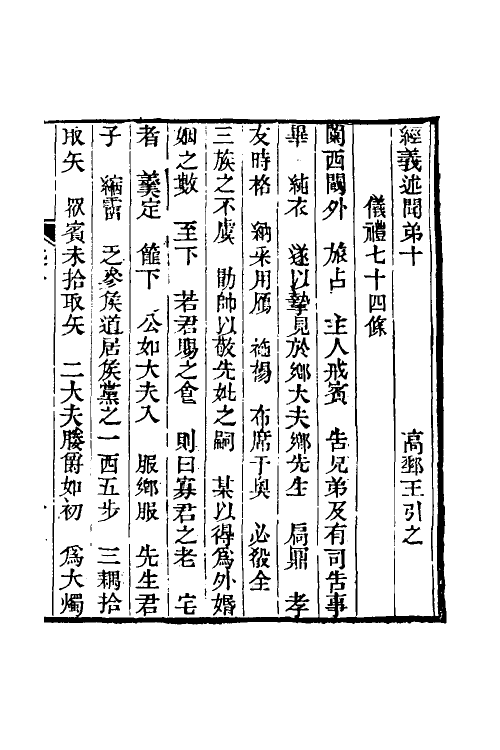 經義述聞弟十　高郵王引之
儀禮七十四條
闑西閾外　旅占　主人戒賓　告兄弟及有司告事
畢　純衣　遂以摯見於鄉大夫鄉先生　扃鼎　孝
友時格　納采用鴈　袡裼　布席于奥　必殺全
三族之不虞　勖帥以敬先妣之嗣　某以得爲外婚
姻之數　至下　若君賜之食　則曰寡君之老　宅
者　羹定　館下　公如大夫入　服鄉服　先生君
子　縮霤　乏參矦道居矦黨之一西五步　三耦拾
取矢　眾賓未拾取矢　二大夫媵爵如初　爲大燭